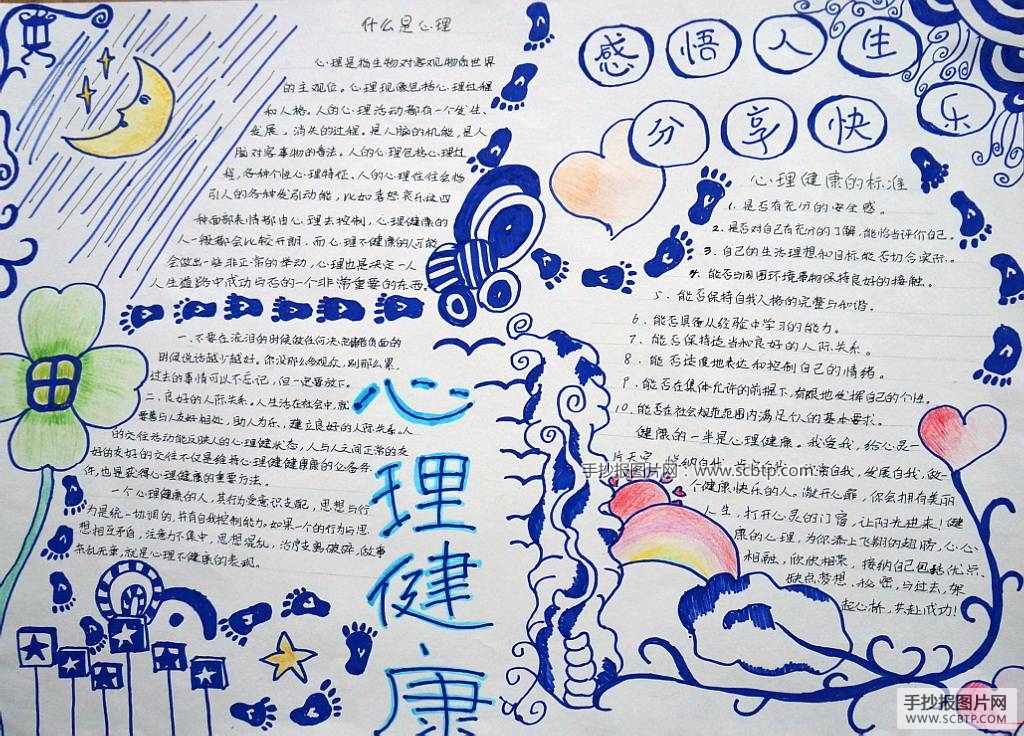 什么是心理
心理是指生物对客观物质世界
的主观位。心理现象包括心理过程
和人格。人的心理活动都有一个发生、
发展，消失的过程，是人脑的机能，是人
脑对客事物的看法。人的心理包括心理过
程，各种个性心理特征。人的心理往往会指
引人的各种发动能，比如喜怒哀乐这四
种面部表情都由心理去控制，心理健康的
人一般都会比较开朗，而心理不健康的人可能
会做出一些非正常的举动，心理也是决定一人
人生道路中成功与否的一个非常重要的东西。
一、不要在流泪的时候做任何决定，情绪负面的
时候说话越少越好。你没那么多观众，别那么累，
过去的事情可以不忘记，但一定要放下。
二、良好的人际关系。人生活在社会中，就
要善与人友好相处，助人为乐，建立良好的人际关系。人
的交往活动能反映人的心理健状态，人与人之间正常的友
好的友好的交往不仅是维持心理健健康康的必备条
件，也是获得心理健康的重要方法。
一个心理健康的人，其行为受意识支配，思想与行
为是统一协调的，并有自我控制能力。如果一个的行为与思
想相互矛盾，注意力不集中，思想混乱，
杂乱无章，就是心理不健康的表现。
心理健康
感悟人生
分享快乐
心理健康的标准
1、是否有充分的安全感。
2、是否对自己有充分的了解，能恰当评价自己。
3、自己的生活理想和目标能否切合实际。
4、能否与周围环境事物保持良好的接触。
5、能否保持自我人格的完整与和谐。
6、能否具备从经验中学习的能力。
7、能否保持适当和良好的人际关系。
8、能否适度地表达和控制自己的情绪。
9、能否在集体允许的前提下，有限地发挥自己的个性。
10、能否在社会规范范围内满足个人的基本要求。
健康的一半是心理健康。我爱我，给心灵一
片天空，悦纳自我，自我，发展自我，做一
个健康快乐的人。敞开心扉，你会拥有美丽
人生，打开心灵的门窗，让阳光进来！健
康的心理，为你添上飞翔的翅膀，心心
相融，欣欣相荣，接纳自己包括优点、
缺点梦想、秘密，与过去，架
起心桥，共赴成功！
手抄报图片网 www.scbtp.com
手抄报图片网
WWW.SCBTP.COM